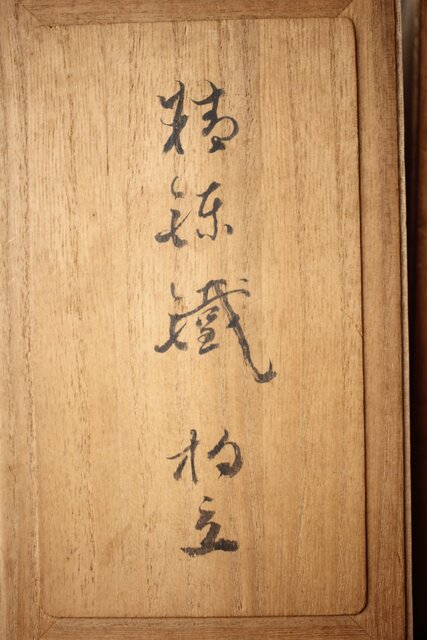 精錬鐵 杓立